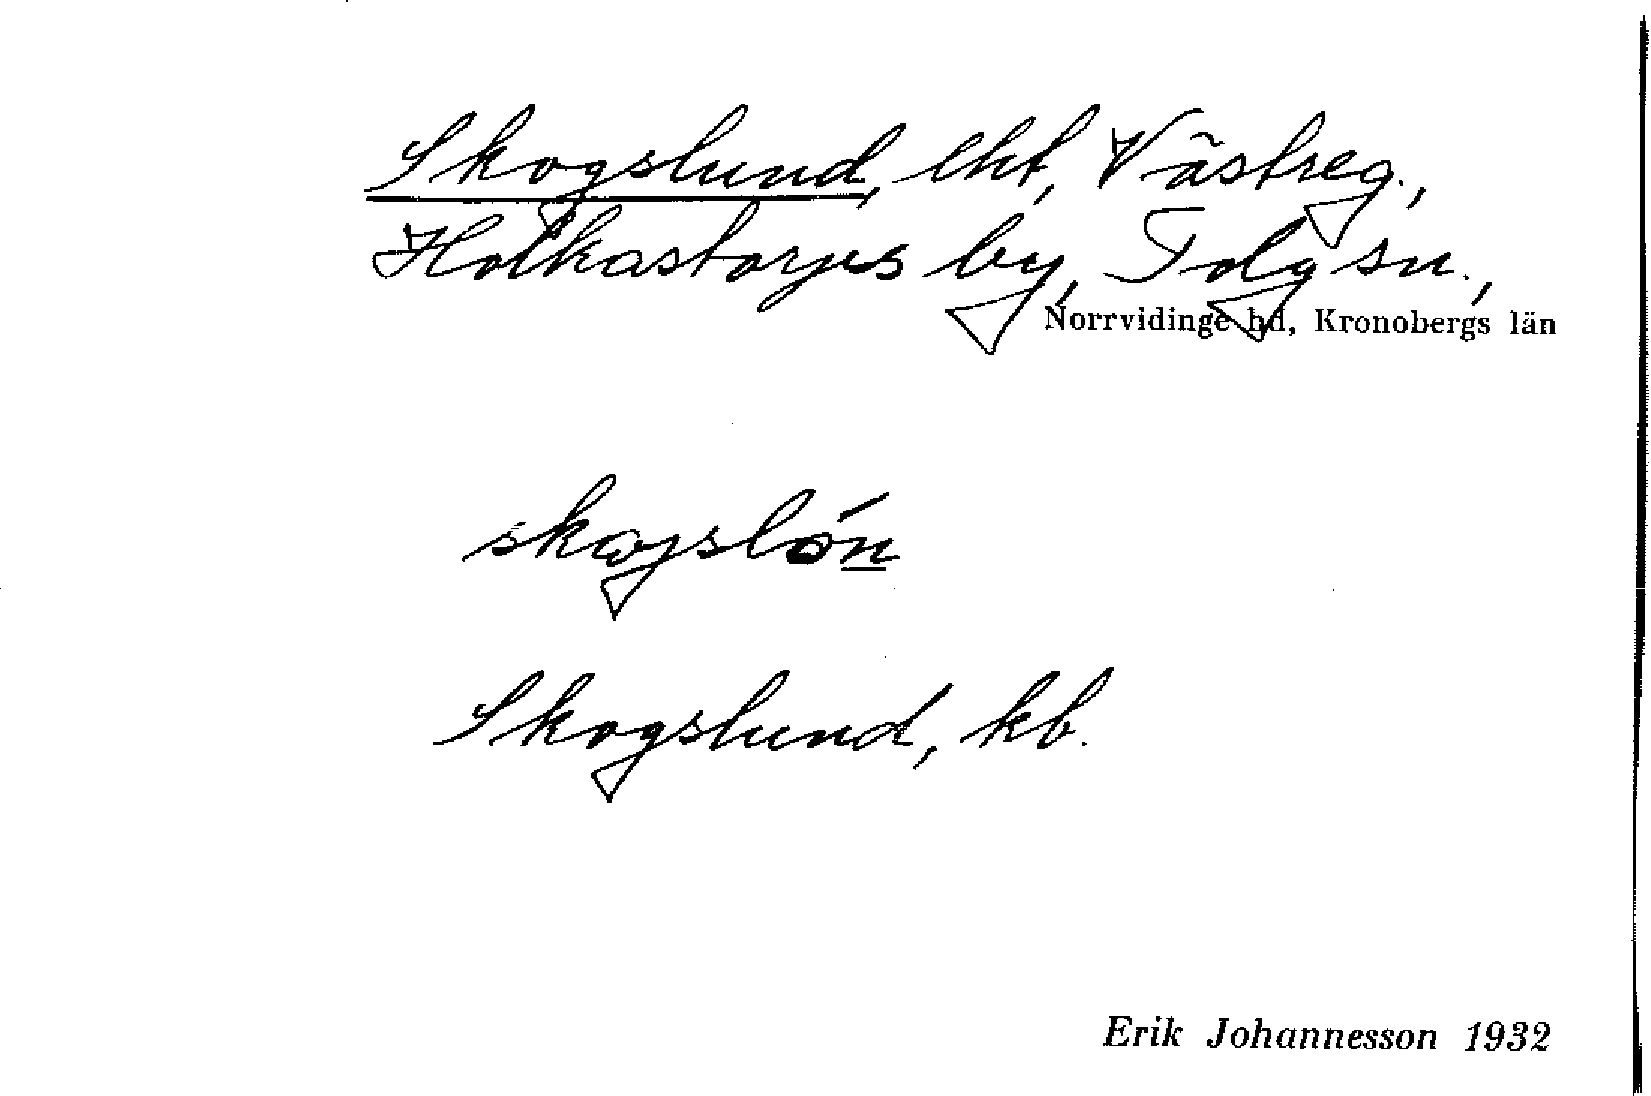 Skogslund, lht, Västreg.,
Holkastorps by, Tolg sn.,
Norrvidinge hd, Kronobergs län
Skogslund, kb.
Erik Johannesson 1932